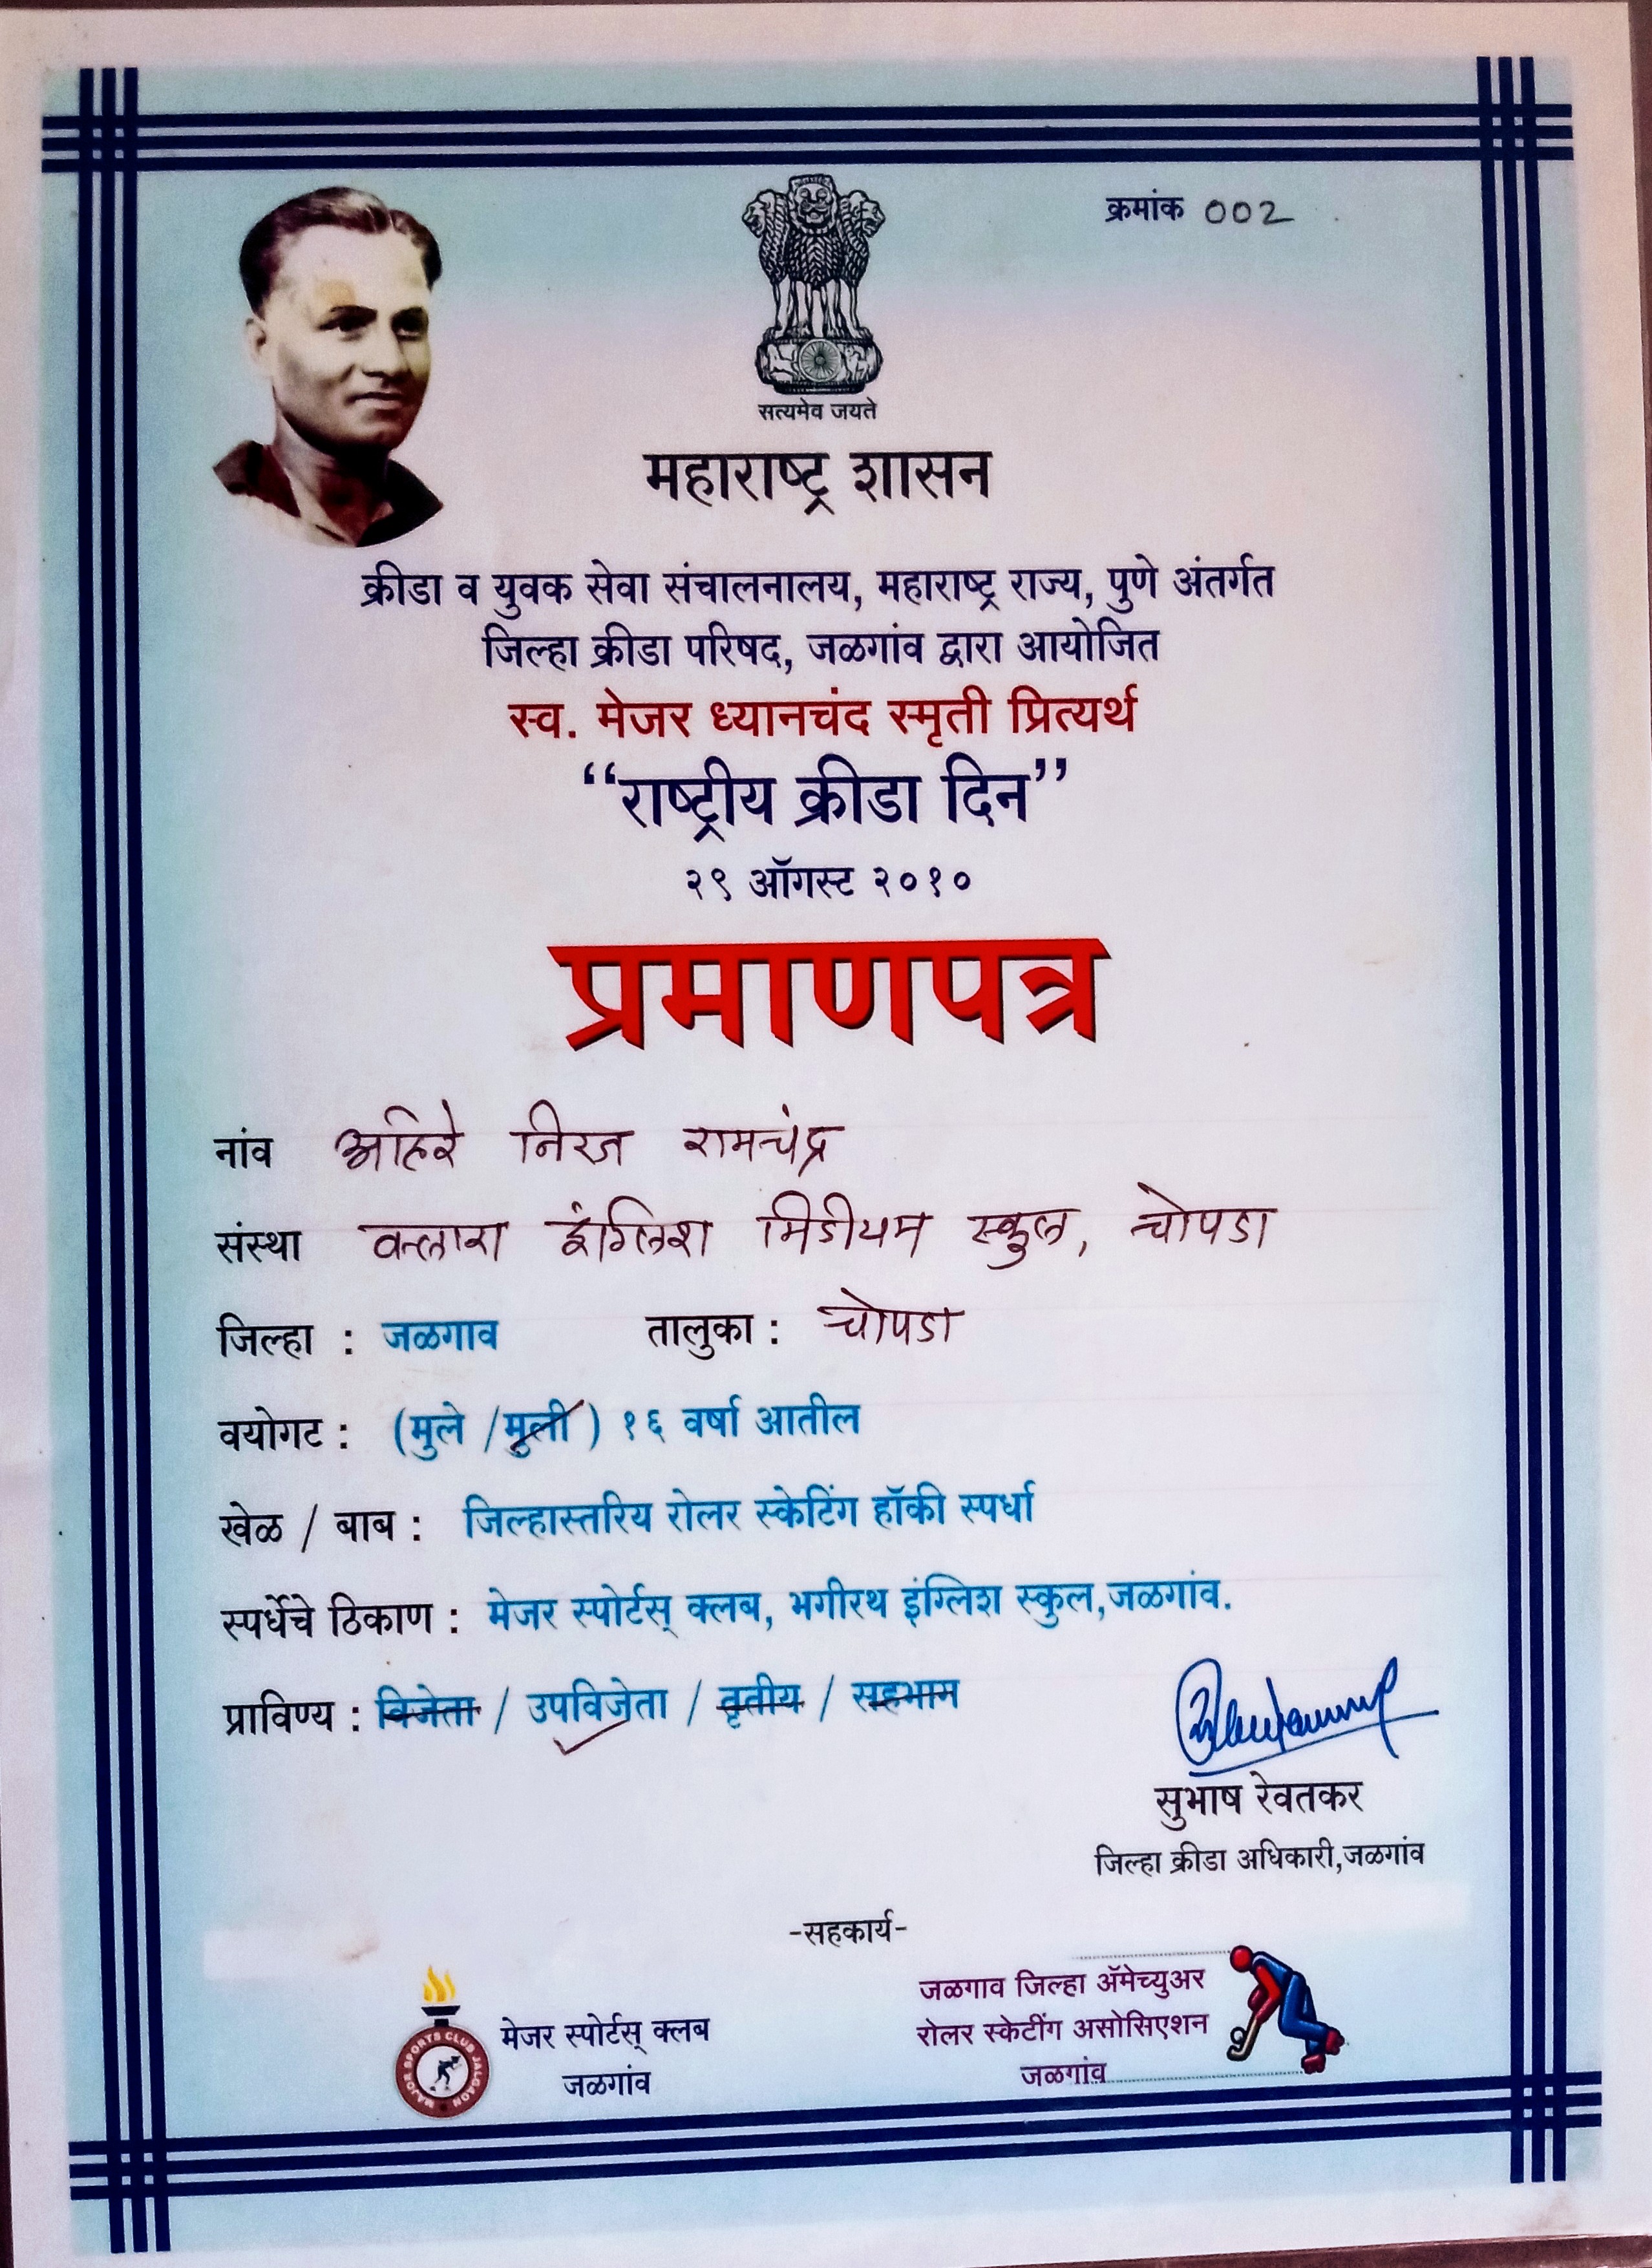 क्रमांक 002
सत्यमेव जयते
महाराष्ट्र शासन
क्रीडा व युवक सेवा संचालनालय, महाराष्ट्र राज्य, पुणे अंतर्गत
जिल्हा क्रीडा परिषद, जळगांव द्वारा आयोजित
स्व. मेजर ध्यानचंद स्मृती प्रित्यर्थ
“राष्ट्रीय क्रीडा दिन”
२९ ऑगस्ट २०१०
प्रमाणपत्र
नांव अहिरे निरज रामचंद्र
संस्था क्लारा इंग्लिश मिडीयम स्कुल, चोपडा
जिल्हा : जळगाव तालुका : चोपडा
वयोगट : (मुले /मुली ) १६ वर्षा आतील
खेळ / बाब : जिल्हास्तरिय रोलर स्केटिंग हॉकी स्पर्धा
स्पर्धेचे ठिकाण : मेजर स्पोर्टस् क्लब, भगीरथ इंग्लिश स्कुल,जळगांव.
प्राविण्य : विजेता / उपविजेता / तृतीय / सहभाग
सुभाष रेवतकर
जिल्हा क्रीडा अधिकारी,जळगांव
-सहकार्य-
MAJOR SPORTS CLUB JALGAON
मेजर स्पोर्टस् क्लब
जळगांव
जळगाव जिल्हा ॲमेच्युअर
रोलर स्केटींग असोसिएशन
जळगांव